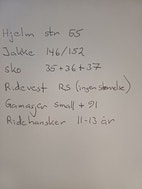 Hjelm str 55
Jakke 146/152
sko 35+36+37
Ridevest RS (ingen størrelse)
Gamacher small + 91
Ridehansker 11-13 år